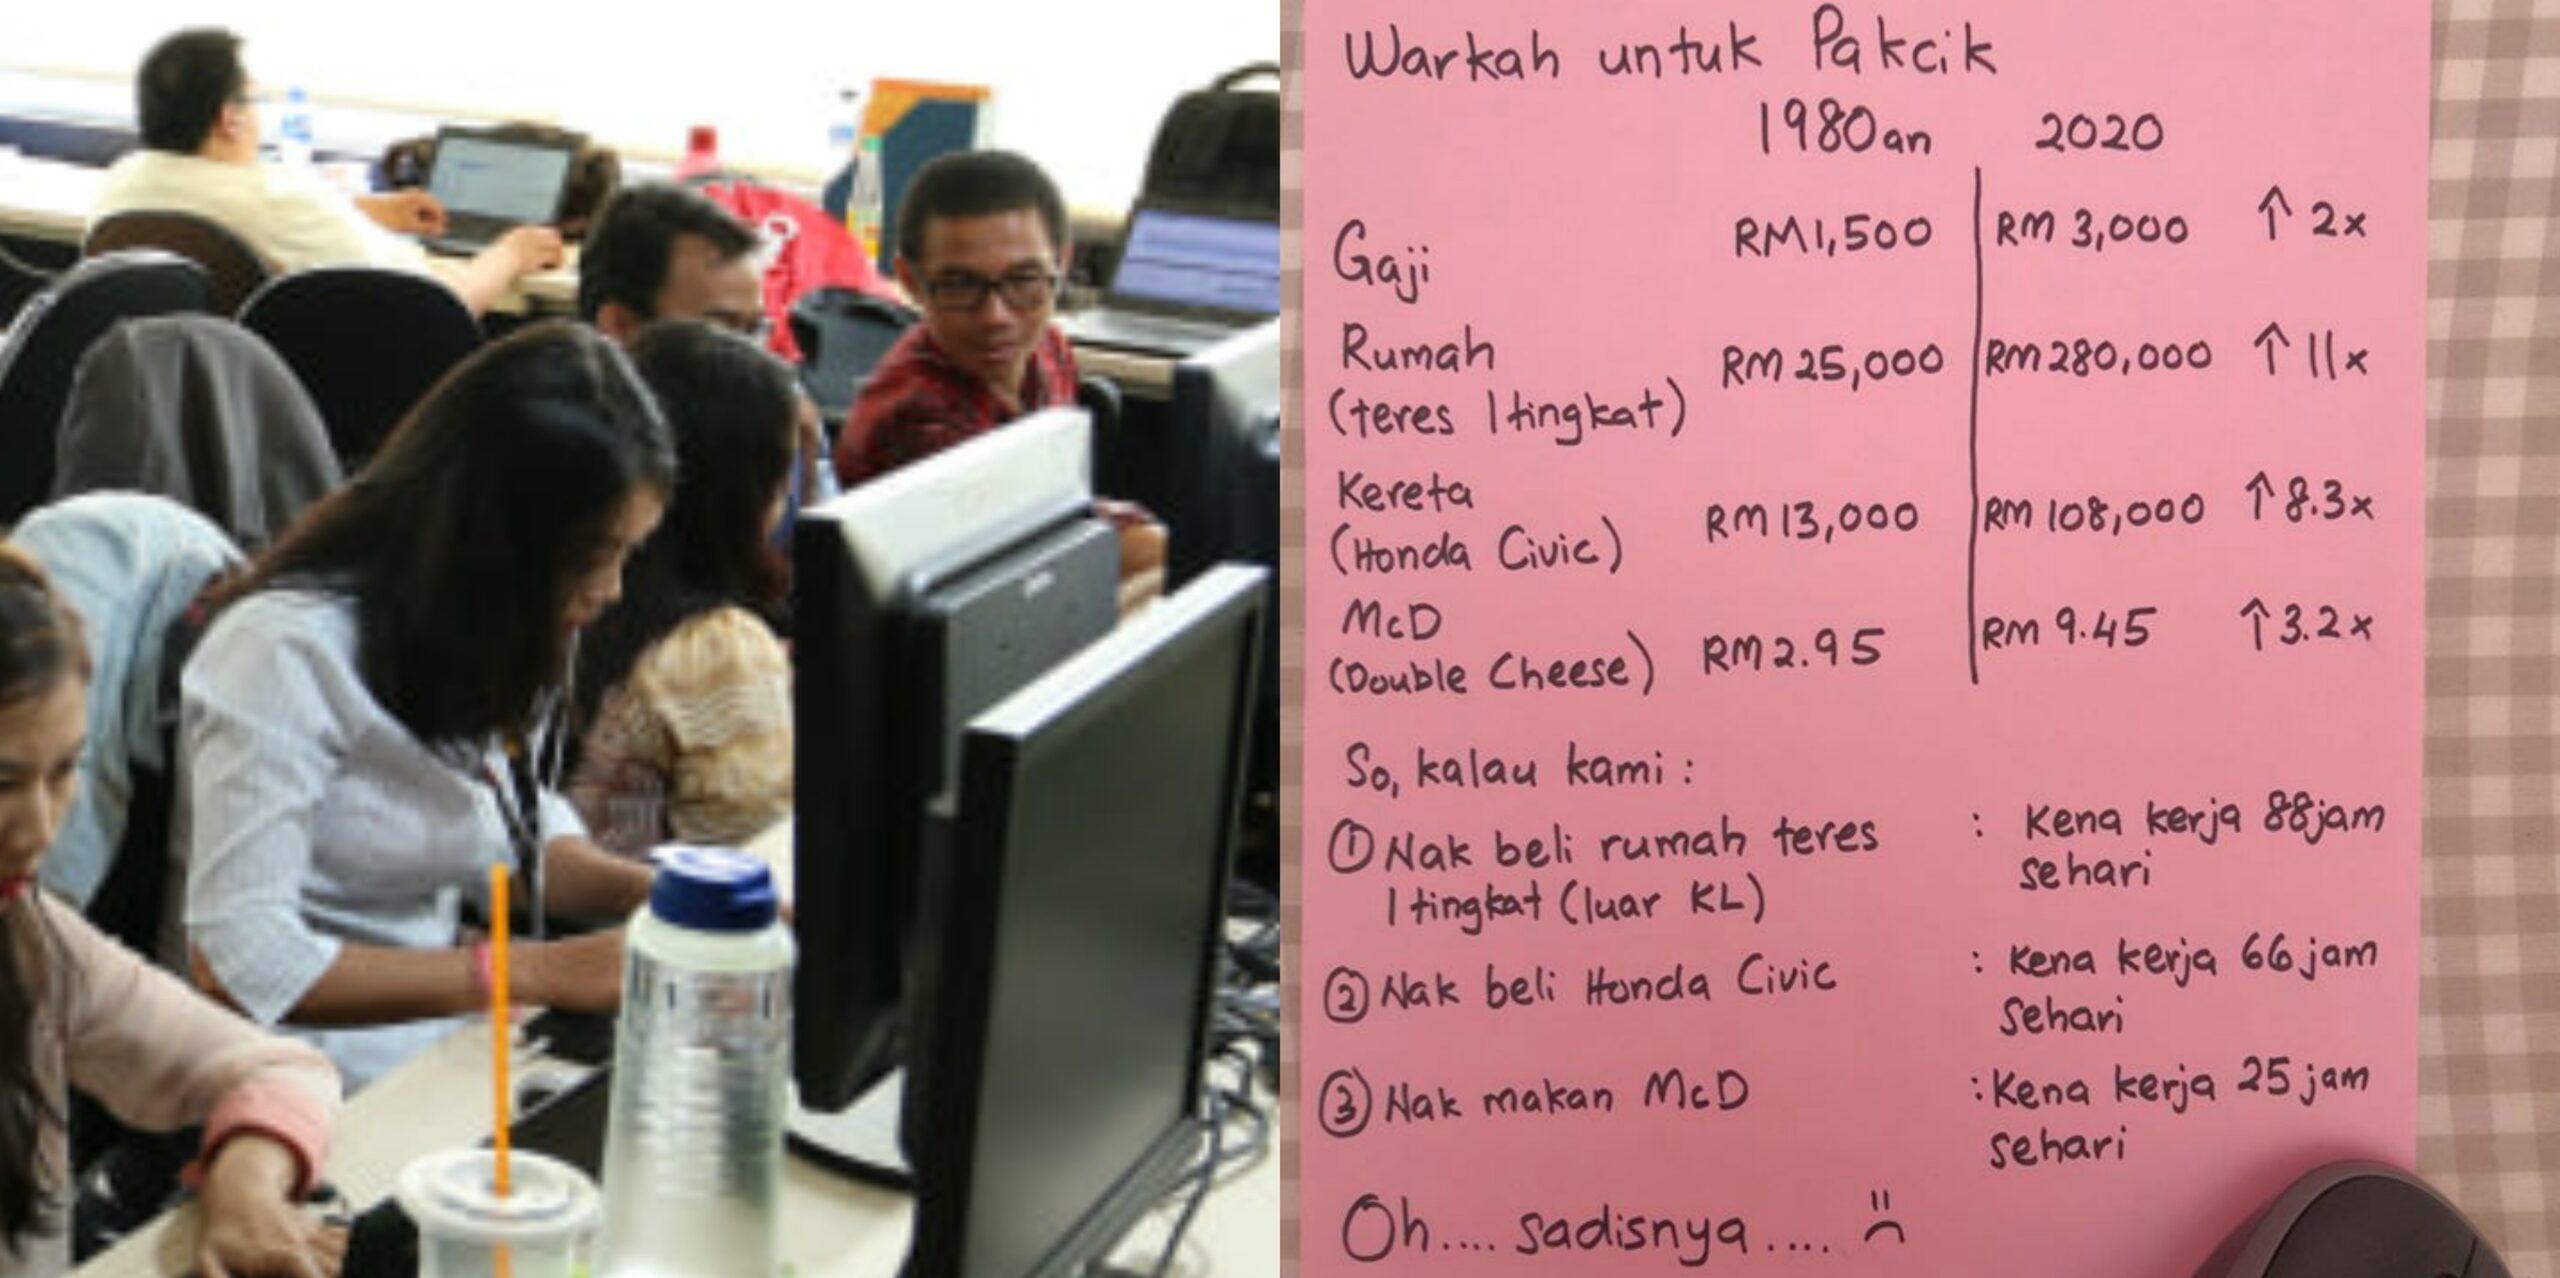 Warkah untuk Pakcik
1980an 2020
Gaji RM1,500 RM 3,000 ↑ 2x
Rumah RM 25,000 RM 280,000 ↑ 11x
(teres 1 tingkat)
Kereta RM 13,000 RM 108,000 ↑ 8.3x
(Honda Civic)
McD RM 2.95 RM 9.45 ↑ 3.2x
(Double Cheese)
So, kalau kami :
① Nak beli rumah teres : Kena kerja 88jam
1 tingkat (luar KL) sehari
② Nak beli Honda Civic : Kena kerja 66 jam
sehari
③ Nak makan McD : Kena kerja 25 jam
sehari
Oh.... sadisnya ....